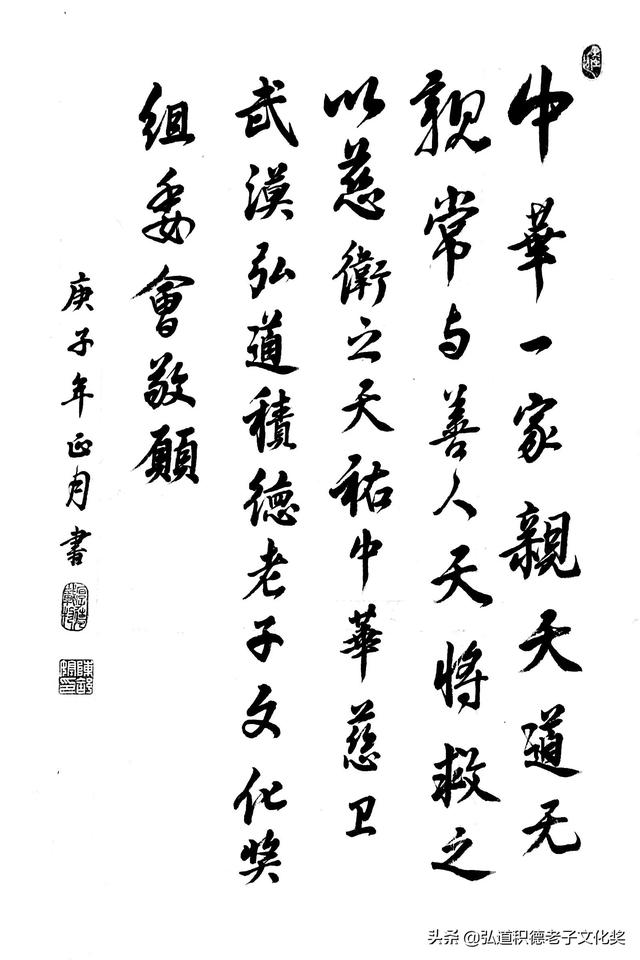 中華一家親天道无
親常与善人天將救之
以慈衛之天祐中華慈卫
武漢弘道積德老子文化奖
組委會敬願
庚子年正月書
头条 @弘道积德老子文化奖